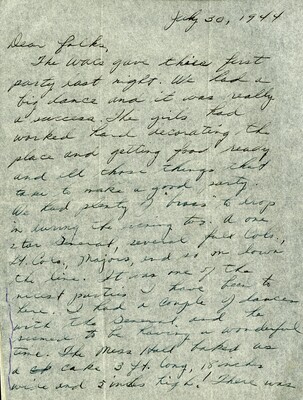 July 30, 1944
Dear folks,
The Wacs gave their first
party last night. We had a
big dance and it was really
a success. The girls had
worked hard decorating the
place and getting food ready
and all those things that
take to make a good party.
We had plenty of "brass" to drop
in during the evening too. A one
star General, several full Cols.,
Lt. Cols, Majors, and so on down
the line. It was one of the
nicest parties I have been to
here. I had a couple of dances
with the General, and he
seemed to be having a wonderful
time. The Mess Hall baked us
a cake 3 ft. long, 15 inches
wide and 5 inches high! There was